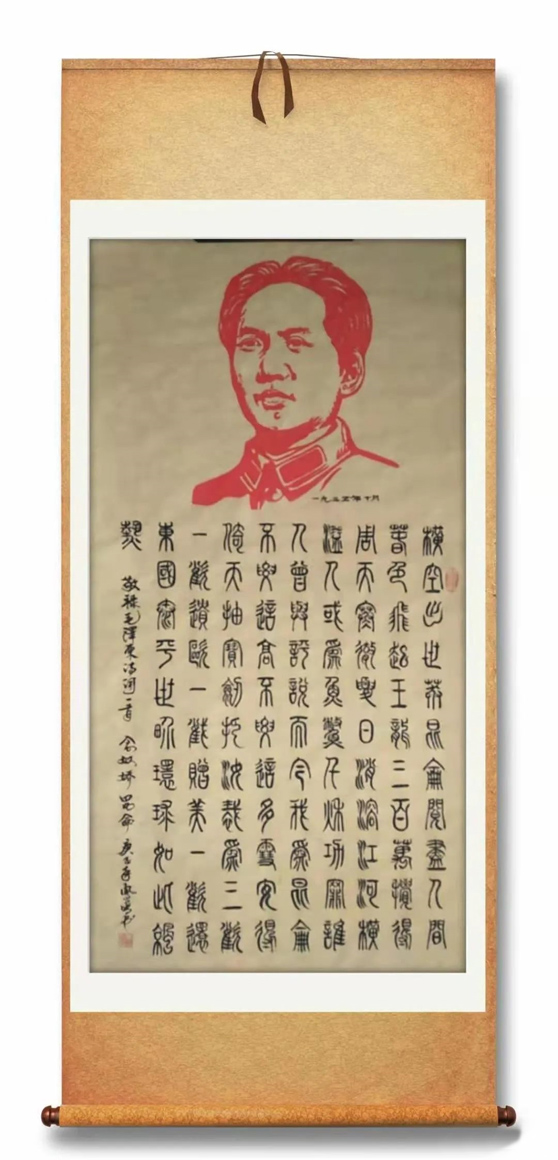 一九三五年十月
橫空出世莽昆侖閱盡人間
春色飛起玉龍三百萬攪得
周天寒徹夏日消溶江河橫
溢人或爲魚鱉千秋功罪誰
人曾與評說而今我爲昆侖
不要這高不要這多雪安得
倚天抽寶劍把汝裁爲三截
一截遺歐一截贈美一截還
東國太平世界環球如此涼
熱
敬錄毛澤東詩詞一首 念奴嬌 昆侖 庚子年